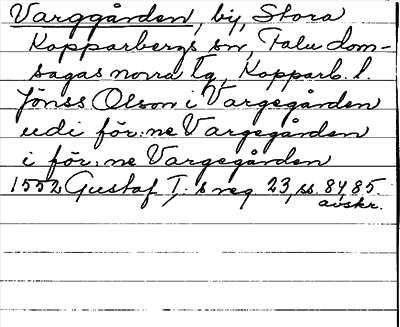 Varggården, by, Stora
Kopparbergs sn, Falu dom-
sagas norra tg, Kopparb. l.
Jönss Olson i Vargegården
udi för:ne Vargegården
i för:ne Vargegården
1552 Gustaf I:s reg. 23, ss. 84, 85.
avskr.